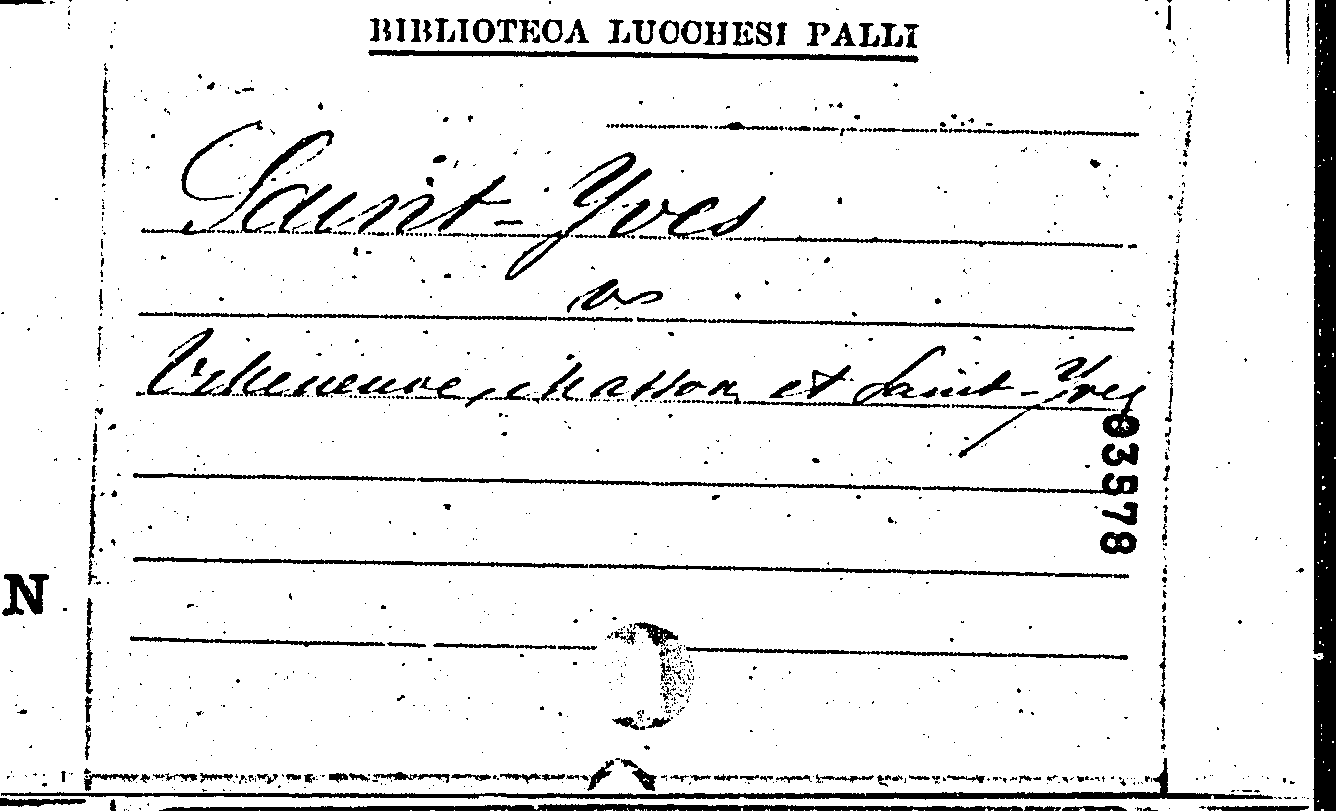 BIBLIOTECA LUCCHESI PALLI
Saint-Yves
vs
Villeneuve, Masson et Saint-Yves
03578
N